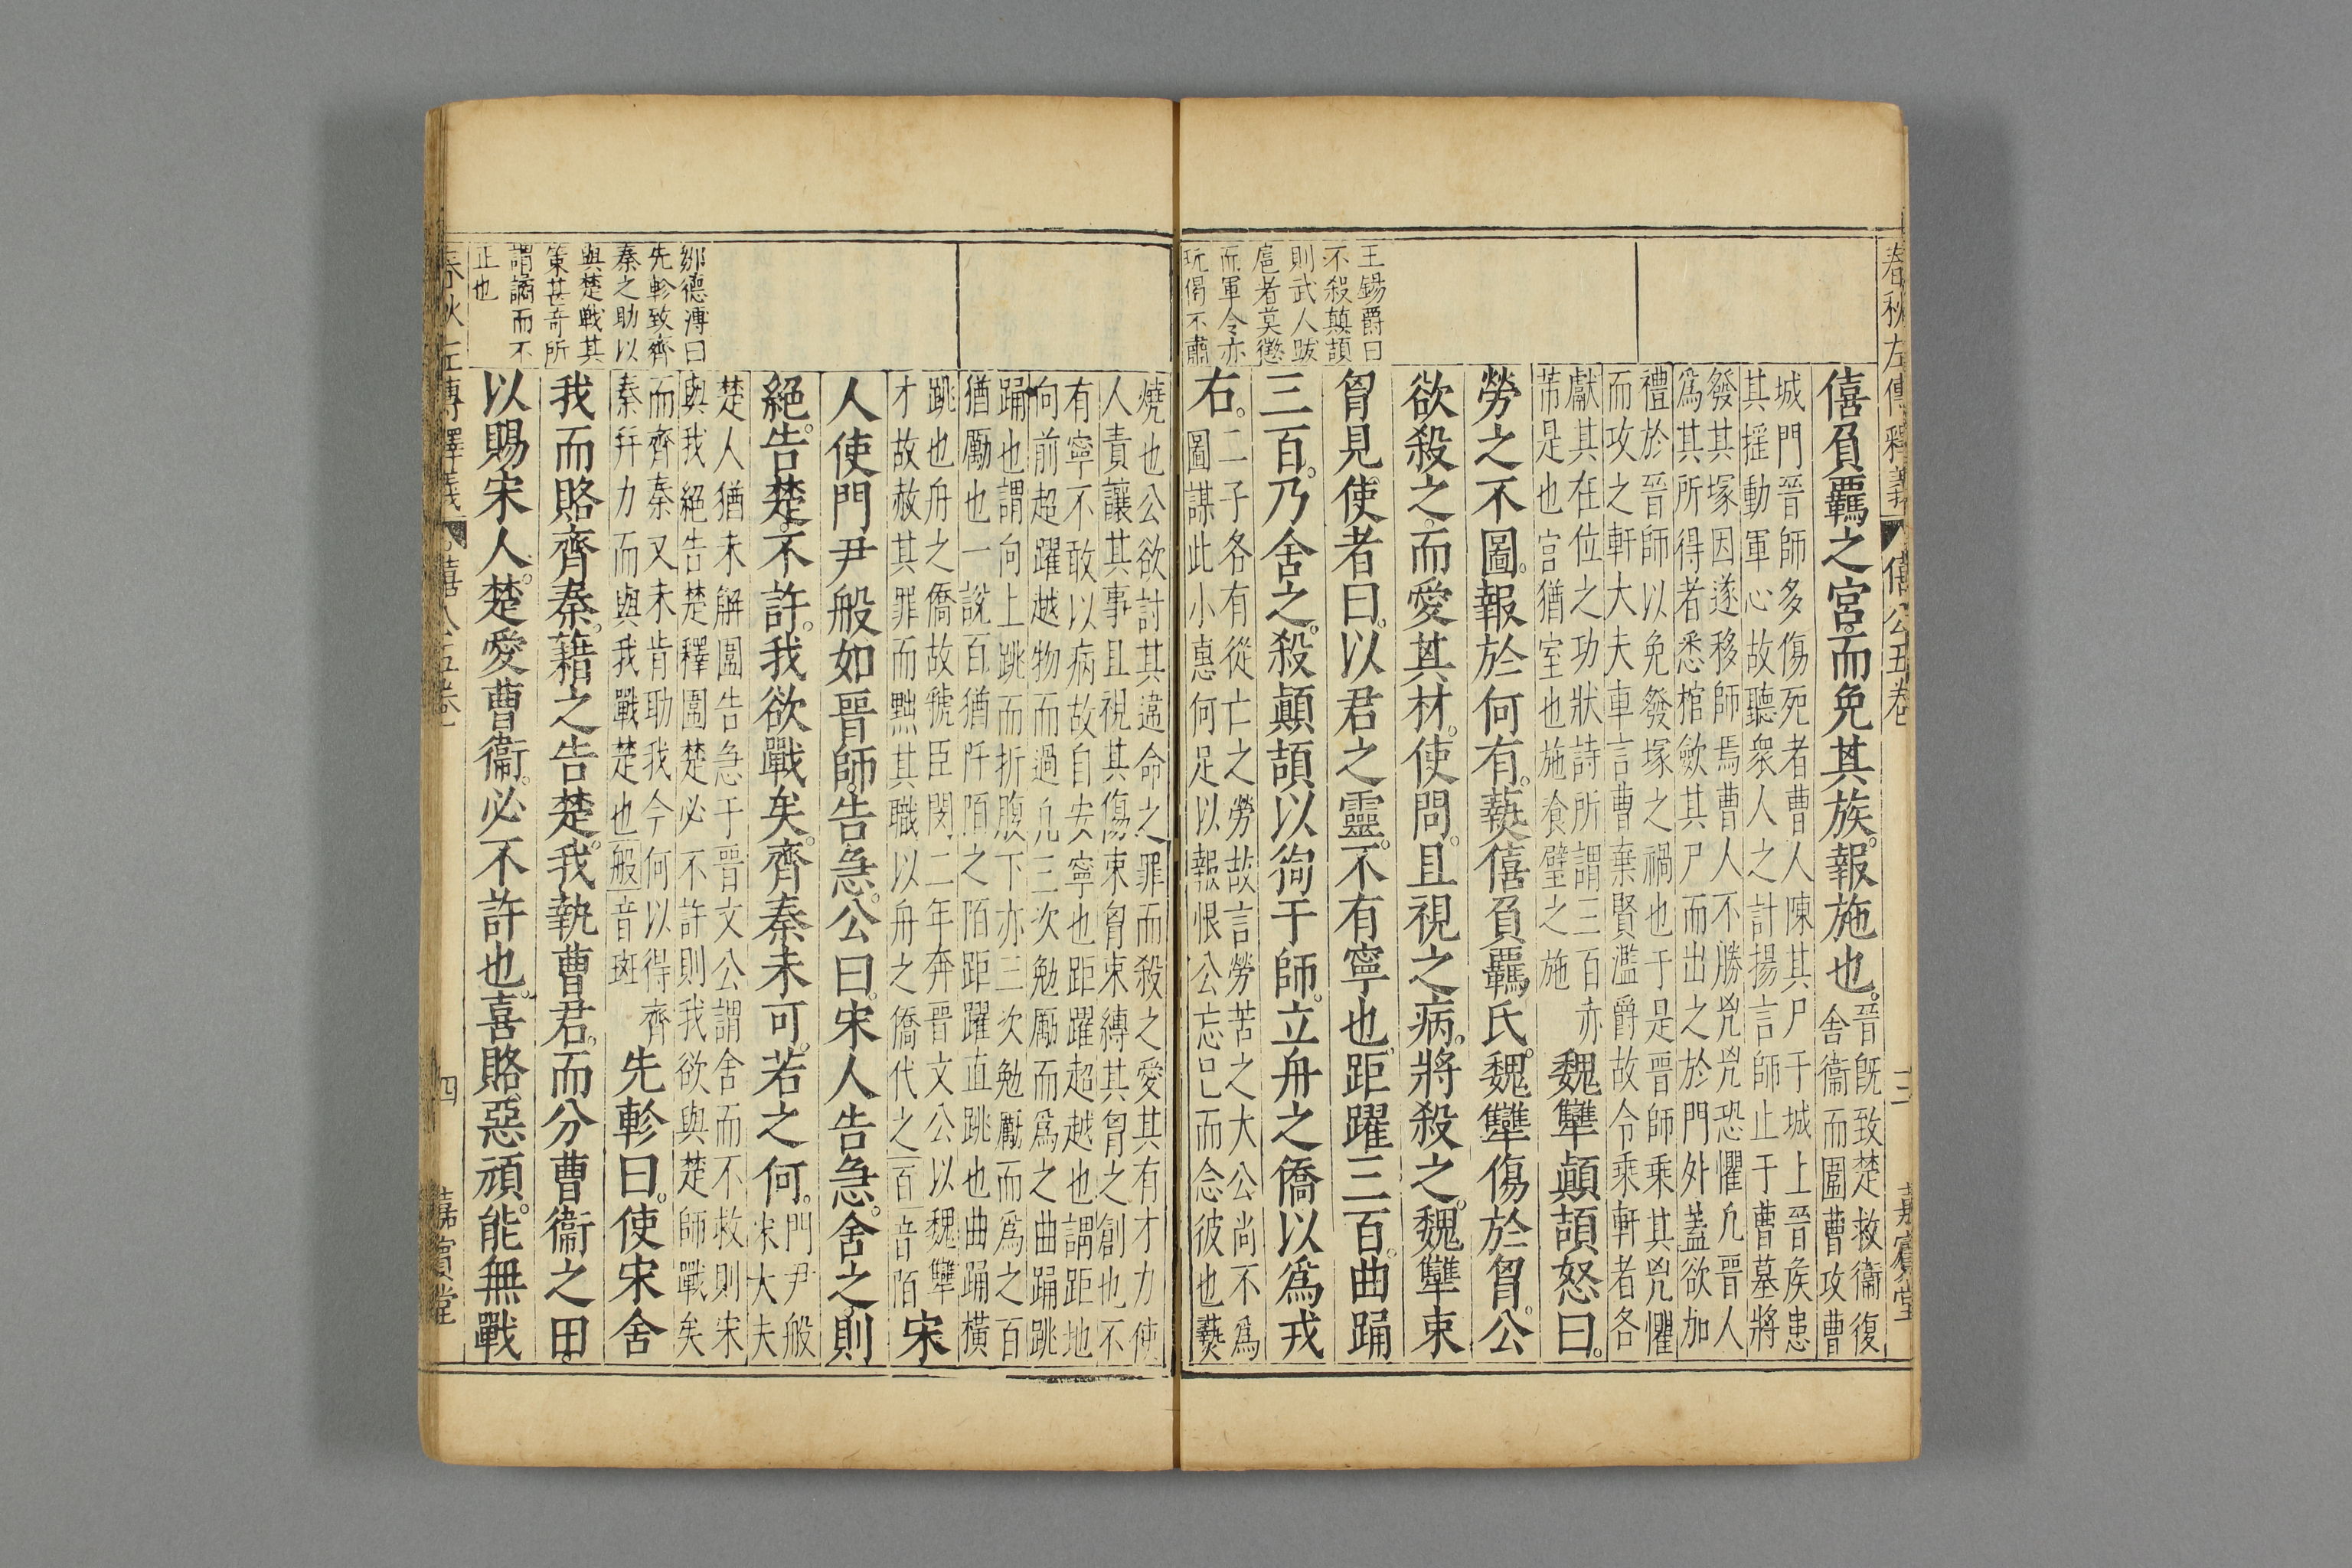 春秋左傳釋義
僖公五卷
三
嘉賓堂
王錫爵曰
不殺顛頡
則武人跋
扈者莫懲
而軍令亦
玩愒不肅
僖負羈之宮而免其族。報施也。晉既致楚救衞復
舍衞而圍曹攻曹
城門晉師多傷死者曹人陳其尸于城上晉矦患
其搖動軍心故聽衆人之計揚言師止于曹墓將
發其塚因遂移師焉曹人不勝兇兇恐懼凡晉人
爲其所得者悉棺歛其尸而出之於門外蓋欲加
禮於晉師以免發塚之禍也于是晉師乘其兇懼
而攻之軒大夫車言曹棄賢濫爵故令乘軒者各
獻其在位之功狀詩所謂三百赤
芾是也宮猶室也施飧璧之施
魏犨顛頡怒曰。
勞之不圖。報於何有。爇僖負羈氏。魏犨傷於胷。公
欲殺之。而愛其材。使問。且視之病。將殺之。魏犨束
胷見使者曰。以君之靈。不有寧也。距躍三百。曲踊
三百。乃舍之。殺顛頡以徇于師。立舟之僑以爲戎
右。二子各有從亡之勞故言勞苦之大公尚不爲
圖謀此小惠何足以報恨公忘已而念彼也爇
燒也公欲討其違命之罪而殺之愛其有才力使
人責讓其事且視其傷束胷束縳其胷之創也不
有寧不敢以病故自安寧也距躍超越也謂距地
向前超躍越物而過凡三次勉厲而爲之曲踊跳
踊也謂向上跳而折腹下亦三次勉厲而爲之百
猶勵也一說百猶阡陌之陌距躍直跳也曲踊橫
跳也舟之僑故虢臣閔二年奔晉文公以魏犨
才故赦其罪而黜其職以舟之僑代之百音陌
宋
人使門尹般如晉師。告急。公曰。宋人告急。舍之。則
絕。告楚。不許。我欲戰矣。齊秦未可。若之何。門尹般
宋大夫
楚人猶未解圍告急于晉文公謂舍而不救則宋
與我絕告楚釋圍楚必不許則我欲與楚師戰矣
而齊秦又未肯助我今何以得齊
秦幷力而與我戰楚也般音班
先軫曰。使宋舍
我而賂齊秦。藉之告楚。我執曹君。而分曹衞之田。
以賜宋人。楚愛曹衞。必不許也。喜賂怒頑。能無戰
鄒德溥曰
先軫致齊
秦之助以
與楚戰其
策甚奇所
謂譎而不
正也
春秋左傳釋義
僖公五卷
四
嘉賓堂